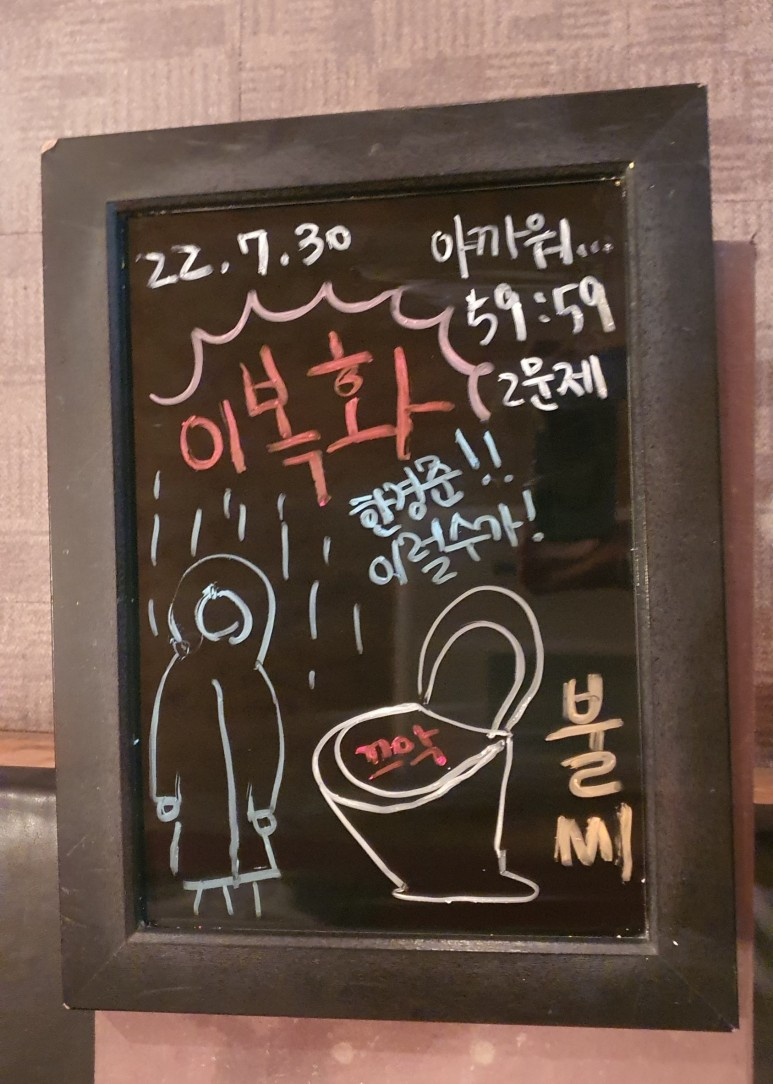 22.7.30
아까워...
59:59
2문제
이복화
한경준!!
이럴수가!
끄악
불
씨